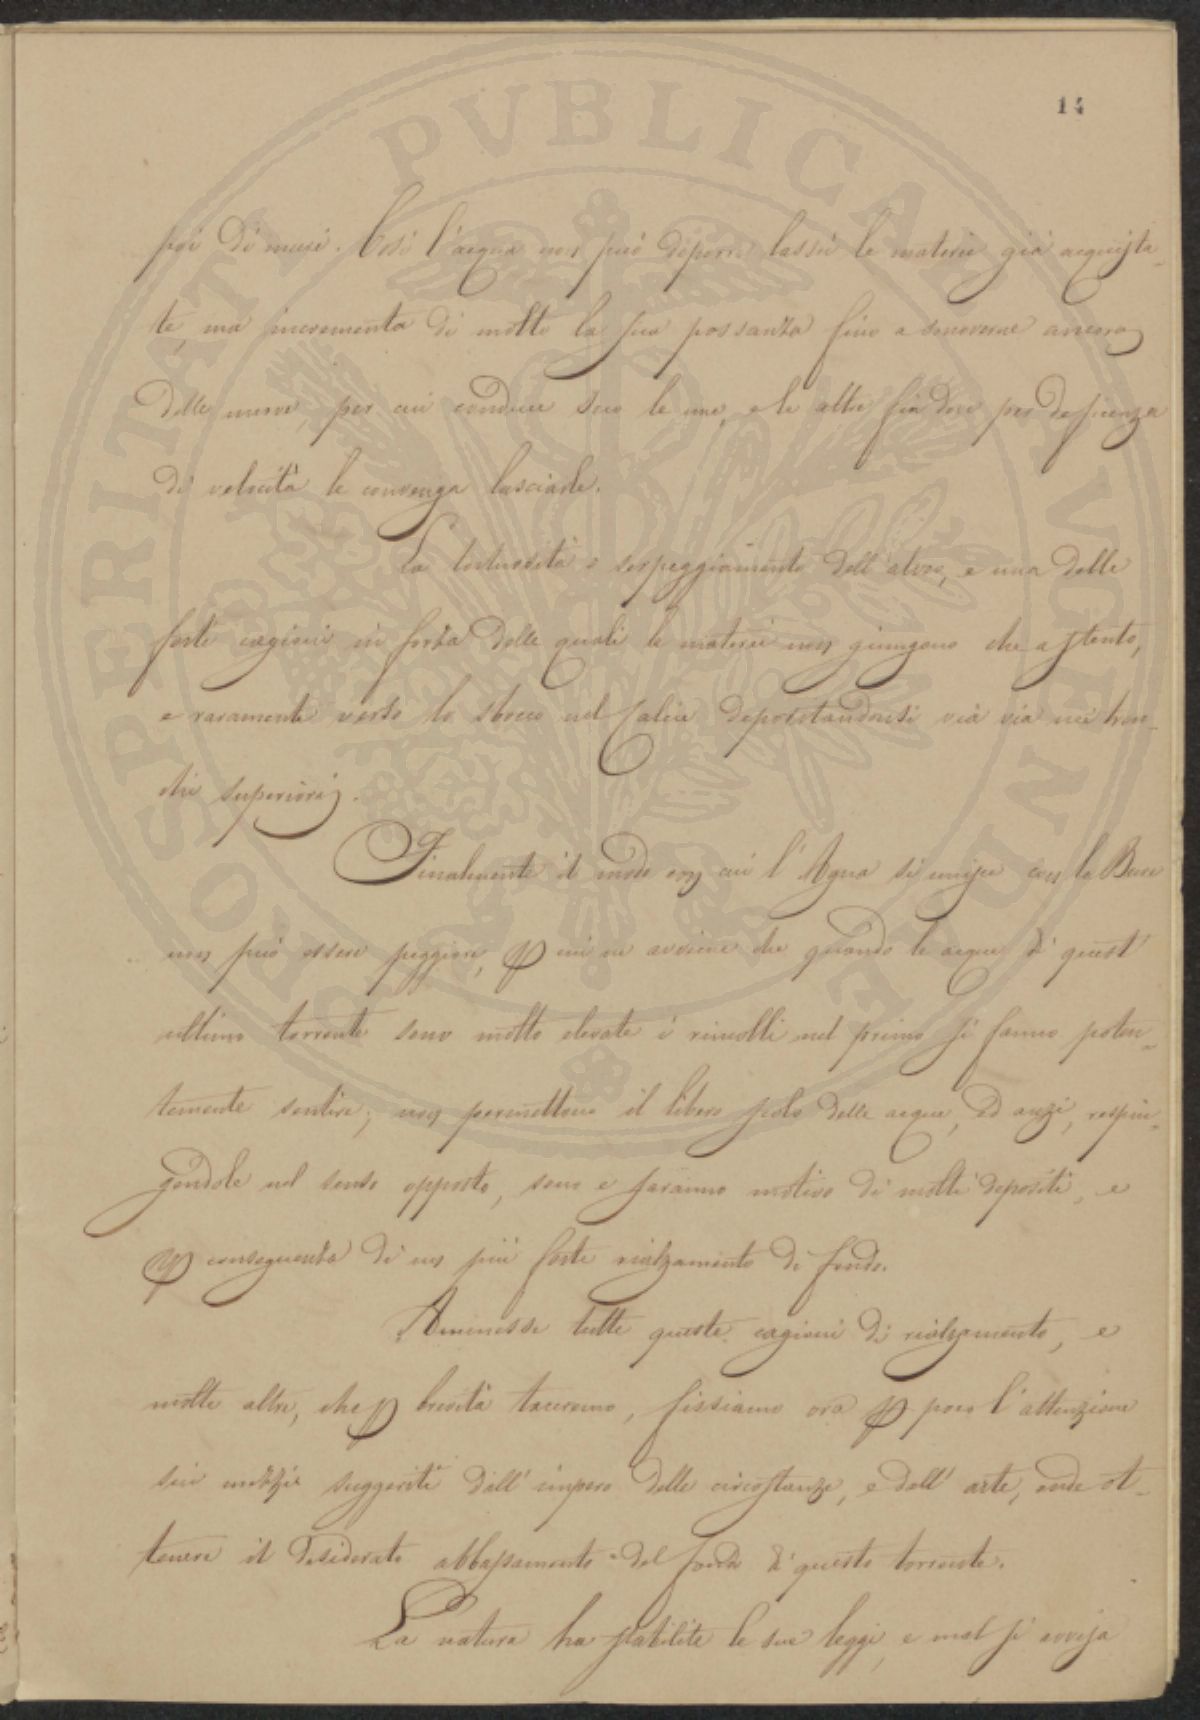 14
poi di muri. Così l'acqua non può deporre lassù le materie già acquista-
te, ma incrementa di molto la sua possanza fino a smoverne ancora
delle nuove, per cui conduce seco le une, e le altre fin dove per deficenza
di velocità le convenga lasciarle.
La tortuosità e serpeggiamento dell'alveo, è una delle
forti cagioni in forza delle quali le materie non giungono che a stento,
e raramente verso lo sbocco nel depositandosi via via nei tron-
chi superiori.
Finalmente il modo con cui l'Agna si unisce con la Bure
non può essere peggiore, ꝑ cui ne avviene che quando le acque di quest'
ultimo torrente sono molto elevate i rincolli nel primo si fanno poten-
temente sentire; non permettono il libero scolo delle acque, ed anzi, respin-
gendole nel senso opposto, sono e saranno motivo di molti depositi, e
ꝑ conseguenza di un più forte rialzamento di fondo.
Ammesse tutte queste cagioni di rialzamento, e
molte altre, che ꝑ brevità taceremo, fissiamo ora ꝑ poco l'attenzione
sui mezzi suggeriti dall'impero delle circostanze, e dall'arte, onde ot-
tenere il desiderato abbassamento del fondo di questo torrente.
La natura ha stabilite le sue leggi, e mal si avvisa
PROSPERITATI PVBLICAE AVGENDAE